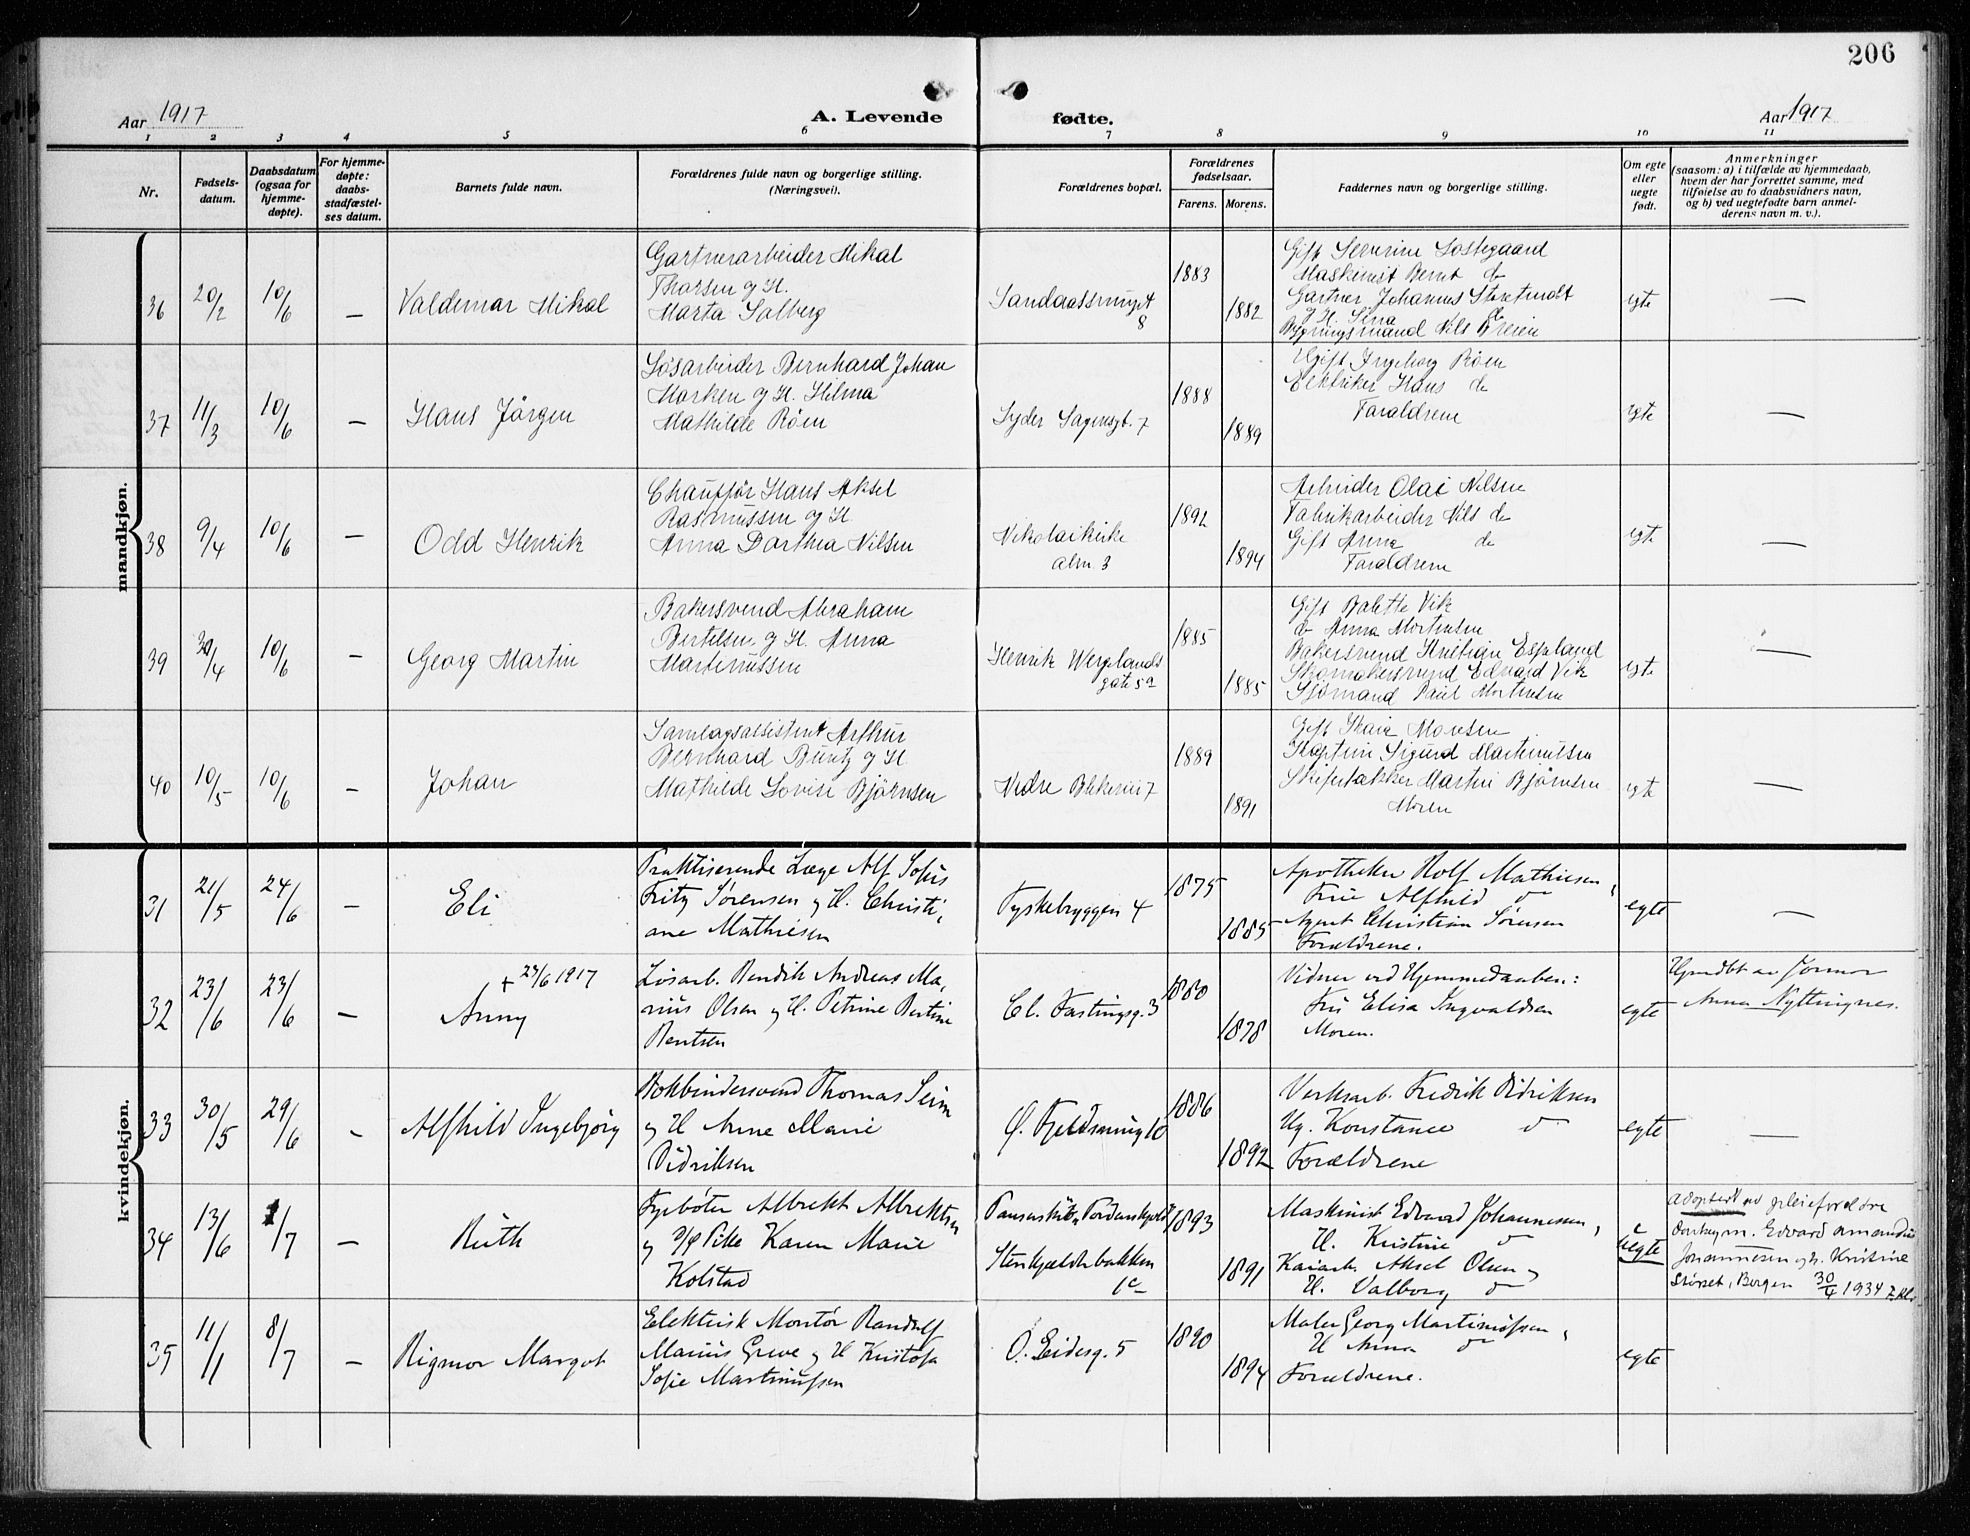 206
Aar 1917
A. Levende
fødte.
Aar 1917
1 2 3 4 5 6 7 8 9 10 11
Nr.
Fødsels-
datum.
Daabsdatum
(ogsaa for
hjemme-
døpte).
For hjemme-
døpte:
daabs-
stadfæstel-
ses datum.
Barnets fulde navn.
Forældrenes fulde navn og borgerlige stilling.
(Næringsvei).
Forældrenes bopæl.
Forældrenes
fødselsaar.
Farens. Morens.
Faddernes navn og borgerlige stilling.
Om egte
eller
uegte
født.
Anmerkninger
(saasom: a) i tilfælde av hjemmedaab,
hvem der har forrettet samme, med
tilføielse av to daabsvidners navn,
og b) ved uegtefødte barn anmel-
derens navn m. v.).
mandkjøn.
36 20/2 10/6 — Valdemar Mikal
Gartnerarbeider Mikal
Thorsen og H.
Marta Solberg
8
1883
1882
Gift Severine
Maskinist Bernt do
Gartner Johannes
og H. Sina do
Bygningsmand Nils
egte
—
37 11/3 10/6 — Hans Jörgen
Løsarbeider Bernhard Johan
Marken og H. Hilma
Mathilde Røen
7
1888
1889
Ugift Ingeborg Røen
Elektriker Hans do
Forældrene
egte
—
38 9/4 10/6 — Odd Henrik
Chauffør Hans Aksel
Rasmussen og H.
Anna Dorthea Nilsen
Nikolaikirke
alm. 3
1892
1894
Arbeider Olai Nilsen
Fabrikarbeider Nils do
Gift Anna do
Forældrene
egte
—
39 30/4 10/6 — Georg Martin
Bakersvend Abraham
Bertelsen og H. Anna
Martinussen
Henrik Wergelands
gate 5a
1885
1885
Gift Valette Vik
do Anna Mortensen
Bakersvend Kristian Espeland
Skomakersvend Edvard Vik
Sjømand Paul Mortensen
egte
—
40 10/5 10/6 — Johan
Samlagsassistent Arthur
Bernhard Buntz og H.
Mathilde Lovise Bjørnsen
Nedre Blekevei 7
1889
1891
Gift Monsen
Kaptein Sigurd Martinussen
Martin Bjørnsen
Moren
egte
—
kvindekjøn.
31 21/5 24/6 — Eli
Praktiserende Læge Alf Sofus
Fritz Sørensen og H. Christi-
ane Mathiesen
Tyskebryggen 4
1875
1885
Apotheker Rolf Mathiesen,
Frue Alfhild do
Agent Christian Sørensen
Forældrene.
egte
—
32 23/6 23/6 — + 23/6 1917
Anny
Løsarb. Bendik Andreas Ma-
rius Olsen og H. Petrine Bertine
Bentsen
Cl. Fastingsg. 3
1880
1878
Vidner ved Hjemmedaaben:
Fru Elisa Ingvaldsen
Moren.
egte
Hjmdbt av Jormor
Anna Nyttingnes.
33 30/5 29/6 — Alfhild Ingebjørg
Bokbindersvend Thomas Seim
og H. Anne Marie
Didriksen
Ø. Fjeldsmug 10
1886
1892
Verksarb. Fredrik Didriksen
Ug. Konstance do
Forældrene
egte
—
34 13/6 1/7 — Ruth
Fyrbøter Albrekt Albrektsen
og Pike Karen Marie
Kolstad
Panserskib Tordenskjold
Stenkjelderbakken
1c
1893
1891
Maskinist Edvard Johannesen,
H. Kristine do
Kaiarb. Aksel Olsen og
H. Valborg do
uegte
adoptert av pleieforeldre
Donkeym. Edvard Amandus
Johannesen og h. Kristine
Bergen 30/4 1934
35 11/1 8/7 — Rigmor Margot
Elektrisk Montør Randulf
Marius Greve og H. Kristofa
Sofie Martinussen
Ø. Eidesg. 5
1890
1894
Maler Georg Martinussen,
H. Anna do
Forældrene.
egte